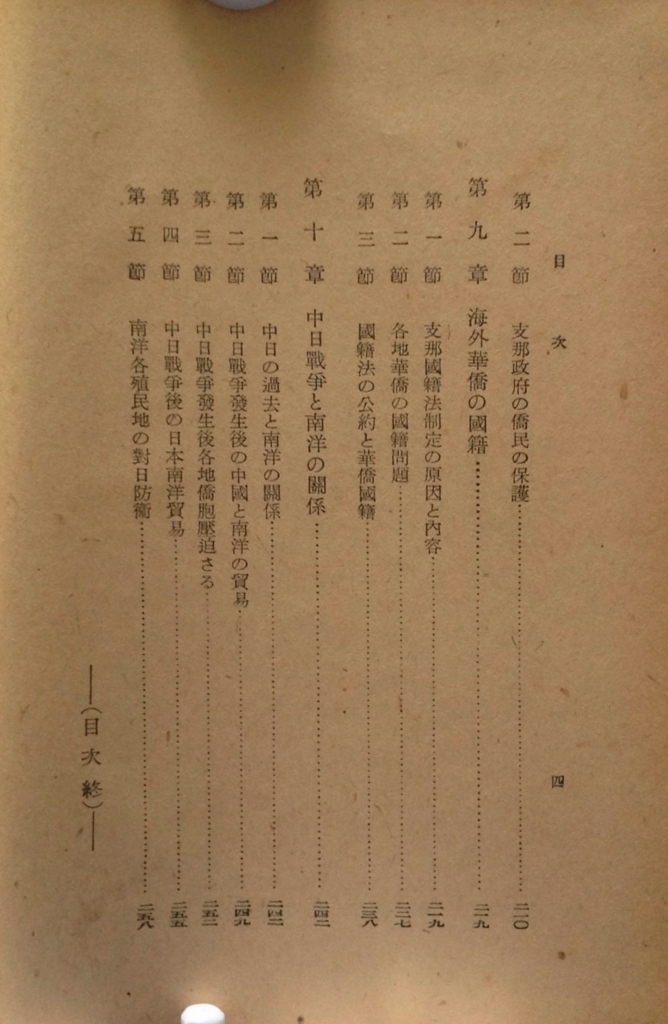 目次
四
第二節 支那政府の僑民の保護……二一〇
第九章 海外華僑の國籍……二一九
第一節 支那國籍法制定の原因と內容……二一九
第二節 各地華僑の國籍問題……二二七
第三節 國籍法の公約と華僑國籍……二三八
第十章 中日戰爭と南洋の關係……二四二
第一節 中日の過去と南洋の關係……二四二
第二節 中日戰爭發生後の中國と南洋の貿易……二四九
第三節 中日戰爭發生後各地僑胞壓迫さる……二五二
第四節 中日戰爭後の日本南洋貿易……二五五
第五節 南洋各殖民地の對日防衞……二五八
―(目次終)―